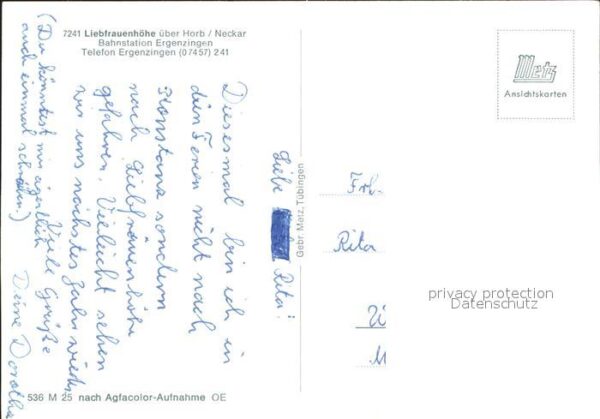 7241 Liebfrauenhöhe über Horb / Neckar
Bahnstation Ergenzingen
Telefon Ergenzingen (07457) 241
Liebe Rita!
Diesesmal bin ich in
den Ferien nicht nach
Konstanz sondern
nach Liebfrauenhöhe
gefahren. Vielleicht sehen
wir uns nächstes Jahr wieder
Viele Grüße
Deine Dorothe
(Du könntest mir eigentlich
auch einmal schreiben)
536 M 25 nach Agfacolor-Aufnahme OE
Gebr. Metz, Tübingen
Metz
Ansichtskarten
Frl.
Rita
Ü
M
privacy protection
Datenschutz